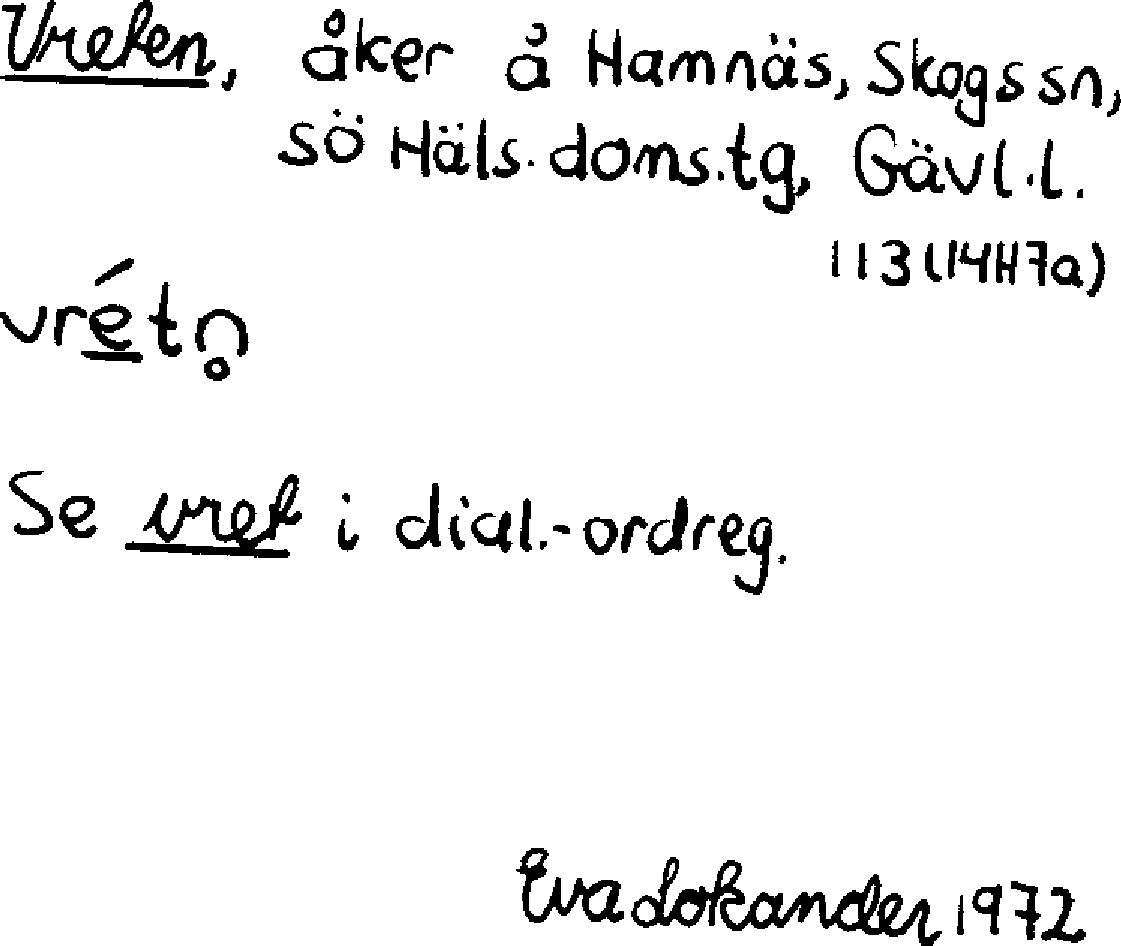 Vreten, åker å Hamnäs, Skogs sn,
sö Häls. doms.tg, Gävl.l.
113 (14H7a)
vrétn̥
Se vret i dial.-ordreg.
Eva Lokander 1972